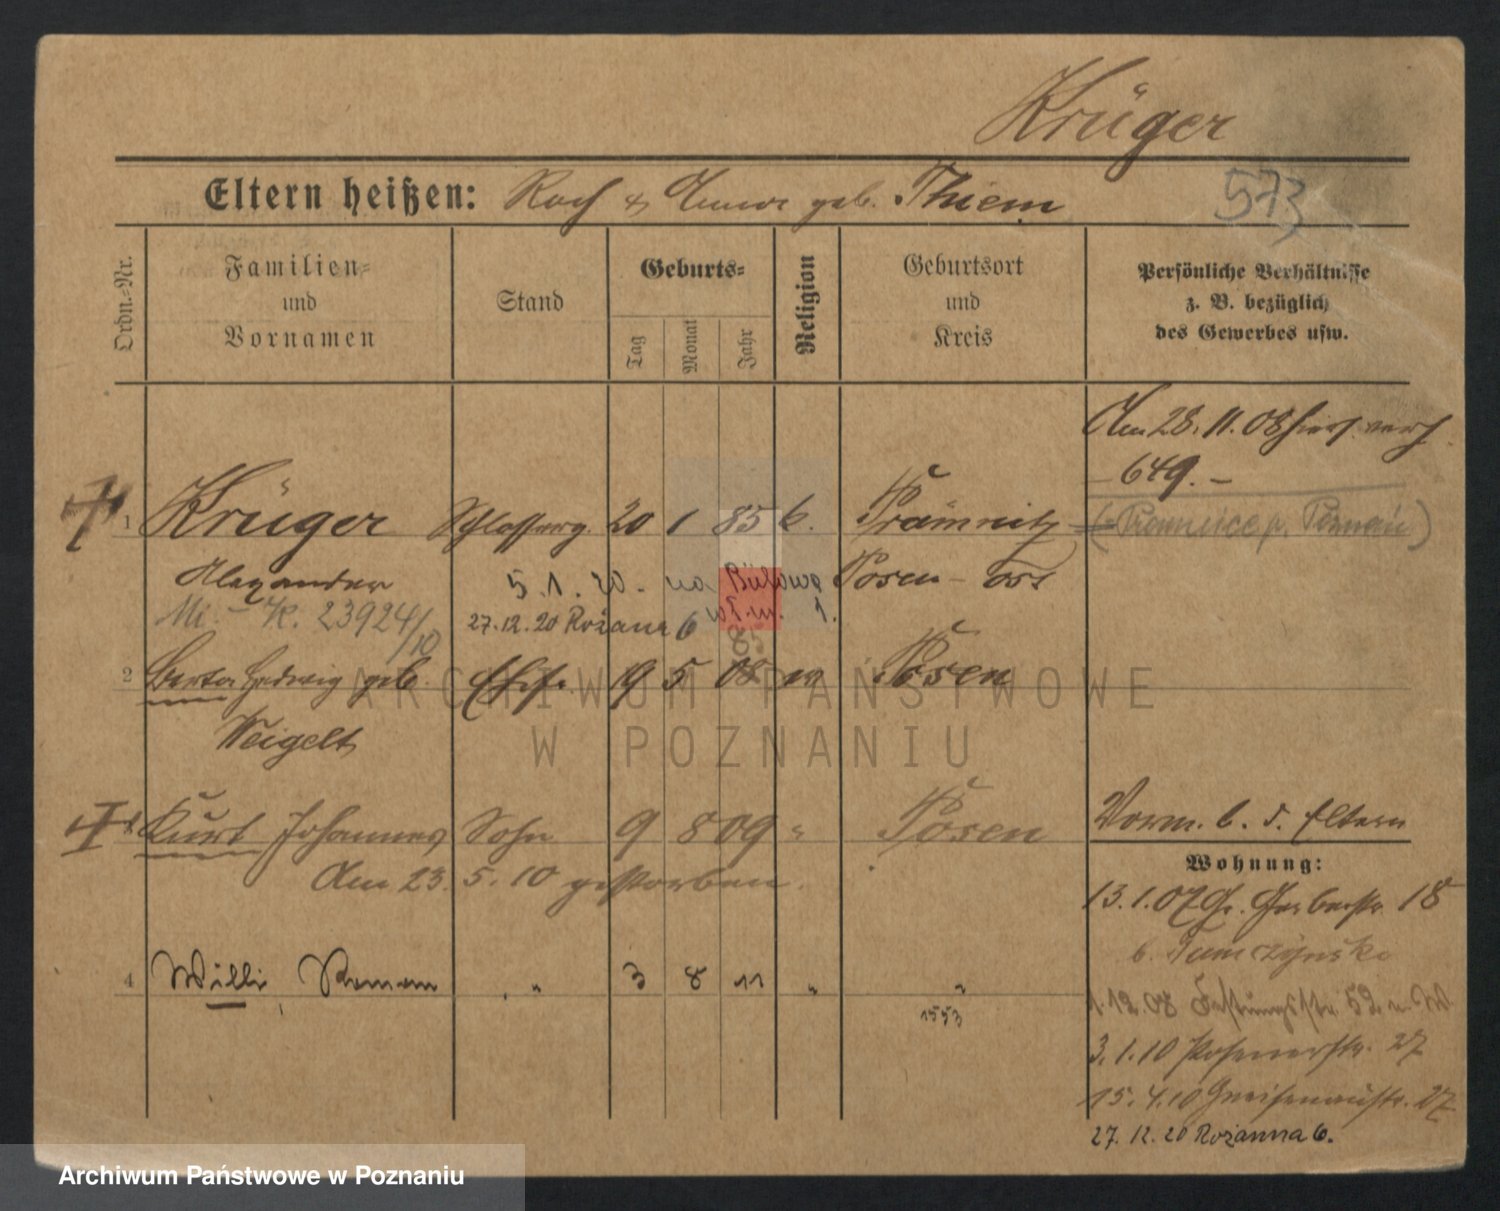 Krüger
Eltern heißen: Roch & Anna geb. Thiem
573
Ordn.-Nr.
Familien-
und
Vornamen
Stand
Geburts-
Tag
Monat
Jahr
Religion
Geburtsort
und
Kreis
Persönliche Verhältnisse
z. B. bezüglich
des Gewerbes usw.
Am 28. 11. 08 hier verh.
- 649. -
1 Krüger Schlosserg. 20 1 85 k. Prämnitz (Poznań)
Alexander 5. 1. 20. na Posen - Ost
Mi. - K. 23924/10 27.12.20 Różana 6 wł. m. 1.
85
2 Berta Hedwig geb. Ehefr. 19 5 08 Posen
Weigelt
3 Kurt Johannes Sohn 9 8 09 " Posen
Am 23. 5. 10 gestorben.
Vorm. b. d. Eltern
4 Willi, Roman " 3 8 11 " "
1553
Wohnung:
13. 1. 07 Gr. Gerberstr. 18
b.
1. 12. 08 Festungsstr. 52
3. 1. 10 Posenerstr. 27
15. 4. 10 Gneisenaustr. 27
27. 12. 20 Różanna 6.
ARCHIWUM PAŃSTWOWE
W POZNANIU
Archiwum Państwowe w Poznaniu